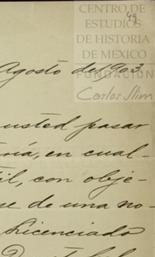 CENTRO DE
ESTUDIOS
DE HISTORIA
DE MEXICO
FUNDACIÓN
Carlos Slim
Agosto de 903.
usted pasar
ría, en cual-
il, con obje-
se de una no-
Licenciado